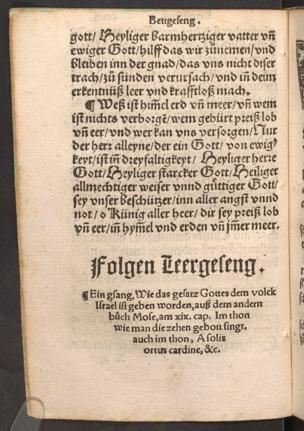 Bettgeseng.
gott/ Heyliger barmhertziger vatter vñ
ewiger Gott/ hilff das wir zůnemen/ vnd
bleiben inn der gnad/ das vns nicht diser
trach/ zů sünden verursach/ vnd in deiner
erkentnüß leer vnd krafftloß mach.
¶ Weß ist himel erd vñ meer/ vñ wem
ist nichts verborgẽ/ wem gebürt preiß lob
vñ eer/ vnd wer kan vns versorgen/ Nur
der herr alleyne/ der ein Gott/ von ewig⸗
keyt/ ist in dreyfaltigkeyt/ Heyliger herre
Gott/ Heyliger starcker Gott/ Heiliger
allmechtiger weiser vnnd güttiger Gott/
sey vnser beschützer/ inn aller angst vnnd
not/ o Künig aller heer/ dir sey preiß lob
vñ eer/ in hymel vnd erden vñ jmer meer.
Folgen Leergeseng.
¶ Ein gsang, Wie das gesatz Gottes dem volck
Israel ist geben worden, auß dem andern
bůch Mose, am xix. cap. Im thon
wie man die zehen gebott singt.
auch im thon, A solis
ortus cardine, &c.